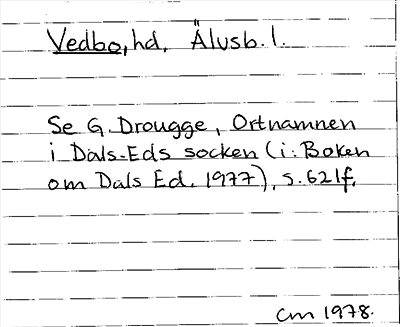 Vedbo, hd. Älvsb. l.
Se G. Drougge, Ortnamnen
i Dals-Eds socken (i: Boken
om Dals Ed. 1977), s. 621f.
CM 1978.